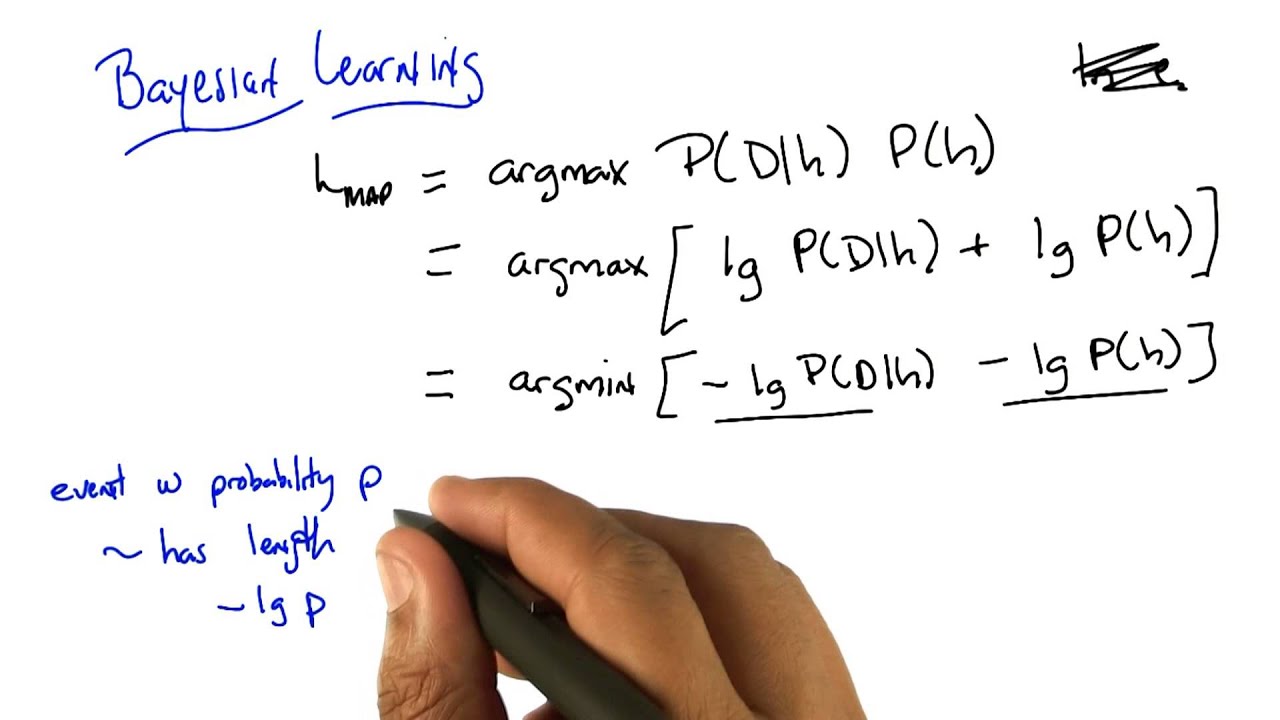 Bayesian Learning
h_MAP = argmax P(D|h) P(h)
= argmax [ lg P(D|h) + lg P(h) ]
= argmin [ - lg P(D|h) - lg P(h) ]
event w probability p
~ has length
- lg p